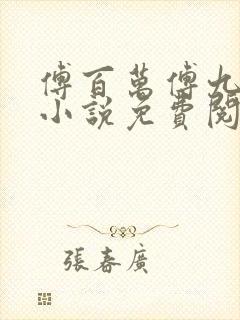 傅百萬傅九
小說免費閱
張春廣